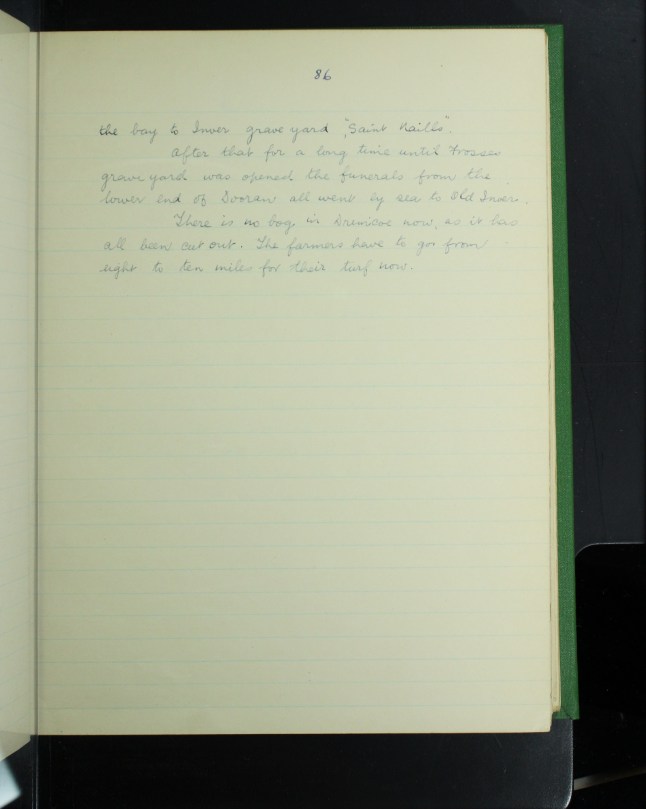 86
the bay to Inver grave yard "Saint Naills".
After that for a long time until Frosses
grave yard was opened the funerals from the
lower end of Dooran all went by sea to Old Inver.
There is no bog in Drenicoe now, as it has
all been cut out. The farmers have to go from
eight to ten miles for their turf now.